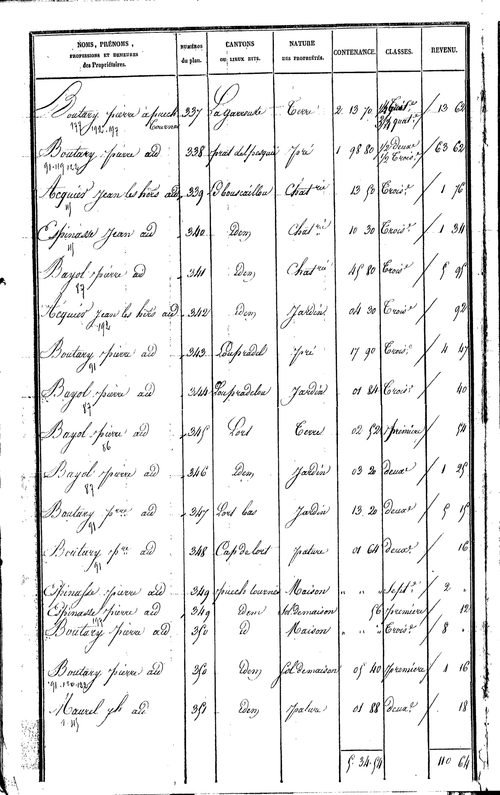 NOMS, PRÉNOMS, PROFESSIONS ET DEMEURES des Propriétaires. NUMÉROS du plan. CANTONS OU LIEUX DITS. NATURE DES PROPRIÉTÉS. CONTENANCE. CLASSES. REVENU.
Boutary pierre à puech Cournou 337 La Garroute Terre 2 13 70 13 62
Boutary pierre aud 338 prat del Pré 1 98 80 63 62
91-119
Acquier Jean les hoirs aud 339 Lébouscaillou Chat.rie 13 50 Trois.e 1 76
Espinasse Jean aud 340 Idem Chat.rie 10 30 Trois.e 1 34
Bayol pierre ad 341 Idem Chat.rie 45 80 Trois.e 5 95
87
Acquier Jean les hoirs aud 342 Idem Jardin 04 30 Trois.e 92
192
Boutary pierre aud 343 Loupradel Pré 17 90 Trois.e 4 47
91
Bayol pierre aud 344 Loupradelou Jardin 01 84 Trois.e 40
87
Bayol pierre aud 345 Lort Terre 02 52 première 54
86
Bayol pierre aud 346 Idem Jardin 03 20 deux.e 1 25
87
Boutary p.rre aud 347 Lort bas Jardin 13 20 deux.e 5 15
91
Boutary p.rre aud 348 Cap de lort pature 01 64 deux.e 16
91
Espinasse pierre aud 349 puech Cournou Maison " " " Sept.e 2 "
Espinasse pierre aud 349 Idem Sol de maison 56 première 12
Boutary pierre aud 350 id Maison " " " Trois.e 8 "
Boutary pierre aud 350 Idem Sol de maison 05 40 première 1 16
Maurel aud 351 Idem pature 01 88 deux.e 18
5. 34. 54 110 64